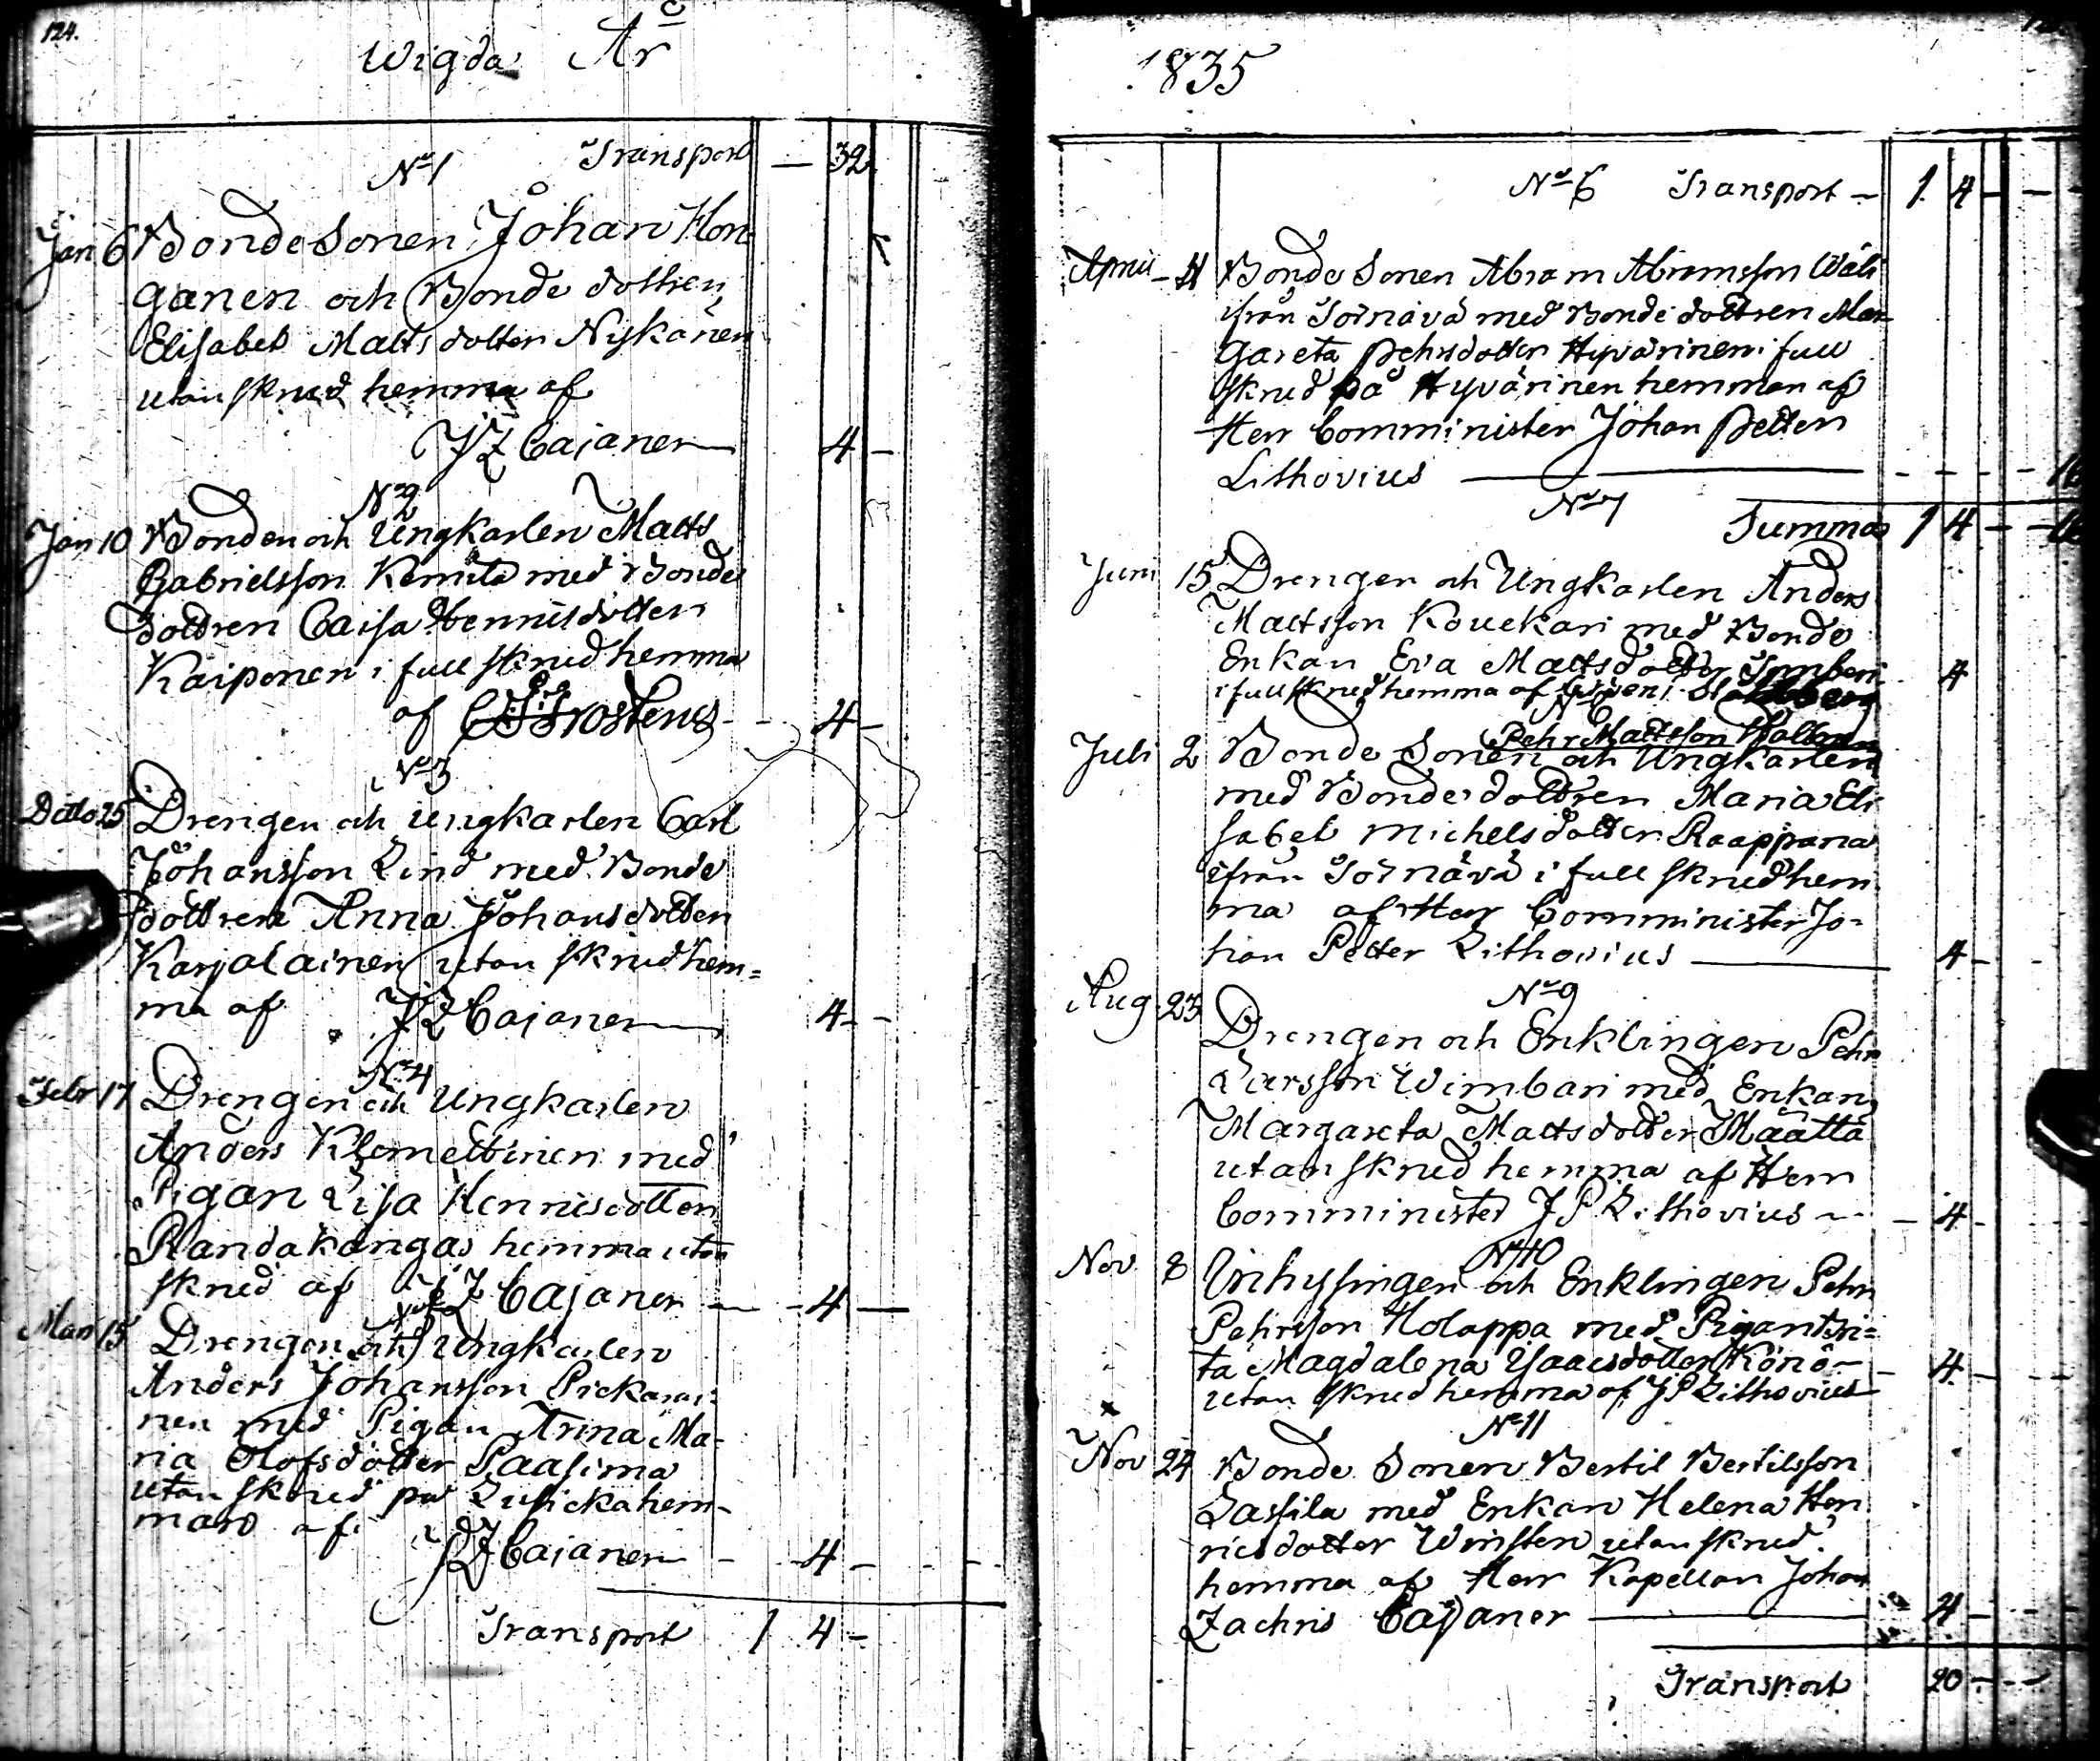 124.
Wigda År
N:o 1 Transport — 32
Jan 6 BondeSonen Johan Hon-
ganen och Bonde dottren
Elisabet Matts dotter Nyskänen
utan skrud hemma af
JZ Cajaner — 4 —
N:o 2
Jan 10 Bonden och Ungkarlen Matts
Gabrielsson Kemila med Bonde
dottren Caisa Hennilsdotter
Kaiponen i full skrud hemma
af Frosterus — 4 —
N:o 3
Ditto 25 Drengen och ungkarlen Carl
Johansson Lind med Bonde
dottren Anna Johansdotter
Karjalainen utan skrud hem=
ma af JZ Cajaner — 4 —
N:o 4
Febr 17 Drengen och Ungkarlen
Anders Klemettinen med
Pigan Lisa Henricsdotter
Randakangas hemma utan
skrud af JZ Cajaner — 4 —
Mars 15 Drengen och Ungkarlen
Anders Johansson Pickarai-
nen med Pigan Anna Ma-
ria Olofsdotter Paasima
utan skrud på Lusicka hem-
man af
JZ Cajaner — 4 —
Transport 1 4 —
1835
N:o 6 Transport — 1 4 —
April 4 Bonde Sonen Abram Abramsson Wäli
ifrån Törnävä med Bonde dottren Mar-
gareta Pehrsdotter Hyvärinen i full
skrud på Hyvärinen hemman af
Herr Comminister Johan Petter
Lithovius — 16
N:o 7
Summa 1 4 — 16
Juni 15 Drengen och Ungkarlen Anders
Mattsson Kouekari med Bonde
Enkan Eva Mattsdotter Imberi
i full skrud hemma af 4
Pehr Mattsson
Juli 2 Bonde Sonen och Ungkarlen
med Bonde dottren Maria Eli
sabet Michelsdotter Raappana
ifrån Törnävä i full skrud hem
ma af Herr Comminister Jo-
han Petter Lithovius — 4 —
N:o 9
Aug 23 Drengen och Enklingen Pehr
Larsson Wimbari med Enkan
Margareta Mattsdotter Määttä
utan skrud hemma af Herr
Comminister JP Lithovius — 4 —
N:o 10
Nov 8 Inhysingen och Enklingen Pehr
Pehrsson Holappa med Pigan Bri=
ta Magdalena Isaacsdotter Könö — 4 —
utan skrud hemma af JP Lithovius
N:o 11
Nov 24 Bonde Sonen Bertil Bertilsson
Lassila med Enkan Helena Hen
ricsdotter Winsten utan skrud
hemma af Herr Kapellan Johan
Zachris Cajaner — 4 —
Transport 20 —